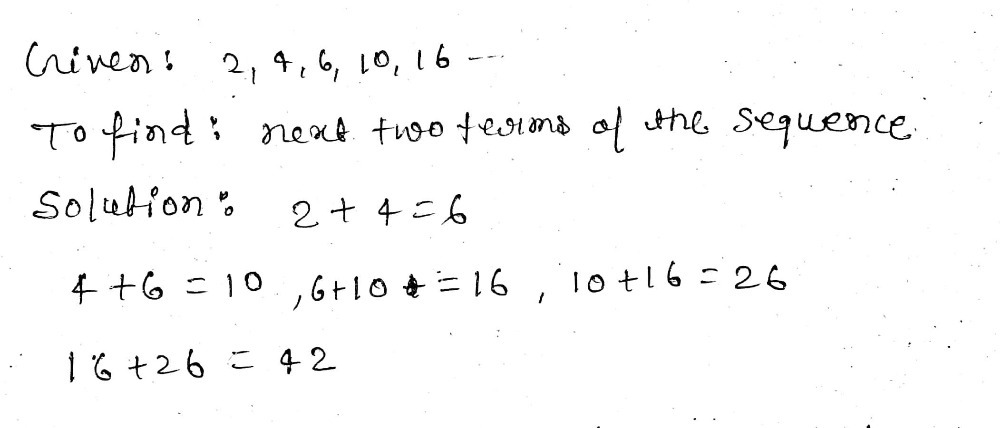 Given: 2, 4, 6, 10, 16 ---
To find: next two terms of the sequence.
Solution: 2 + 4 = 6
4 + 6 = 10, 6+10 = 16, 10 + 16 = 26
16 + 26 = 42